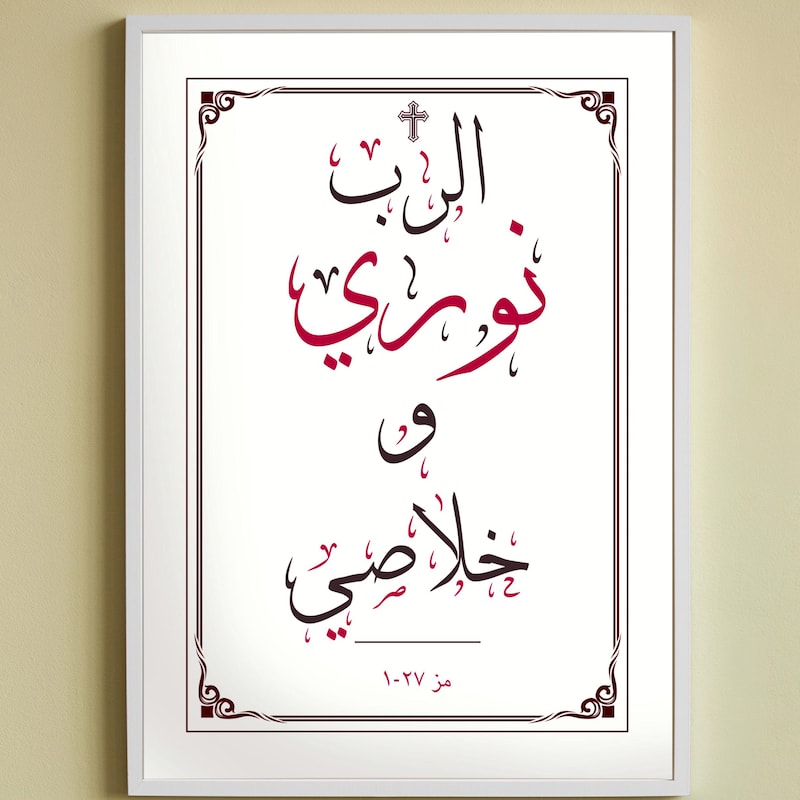 الرب
نوري
و
خلاصي
مز ٢٧-١